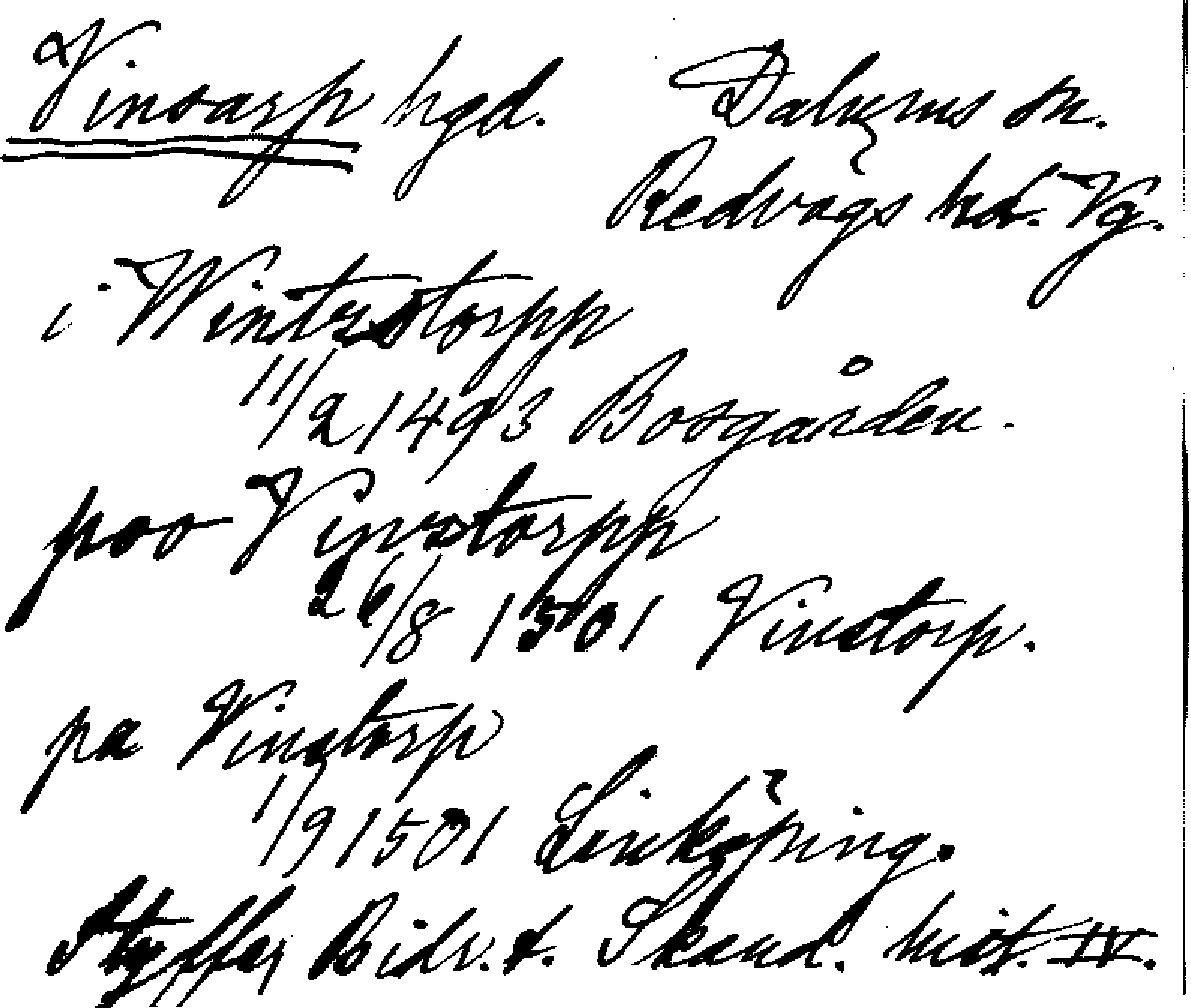 Vinsarp hgd. Dalums sn.
Redvägs hd. Vg.
i Wintrstorpp
11/2 1493 Bosgården.
poo Vinstorpp
26/8 1501 Vinstorp.
pa Vinstorp
1/9 1501 Linköping.
Styffe, Bidr. t. Skand. hist. IV.